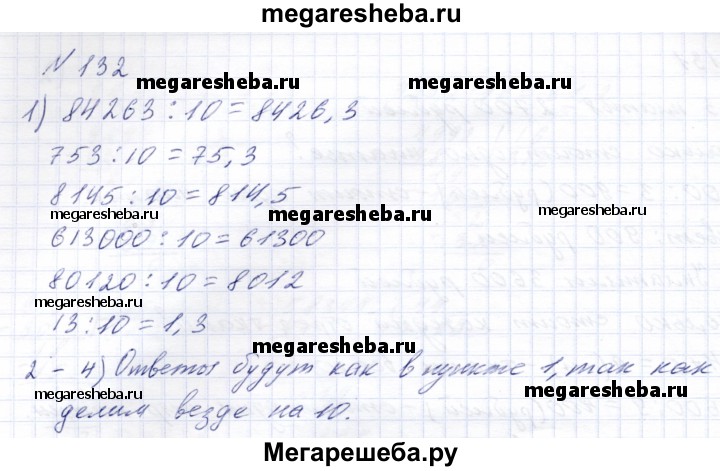 megaresheba.ru
N 132
megaresheba.ru megaresheba.ru
1) 84263 : 10 = 8426,3
753 : 10 = 75,3
8145 : 10 = 814,5
megaresheba.ru megaresheba.ru
613000 : 10 = 61300
80120 : 10 = 8012
megaresheba.ru megaresheba.ru
13 : 10 = 1,3
megaresheba.ru
2 - 4) Ответы будут как в пункте 1, так как
megaresheba.ru
делим везде на 10.
Мегарешеба.ру